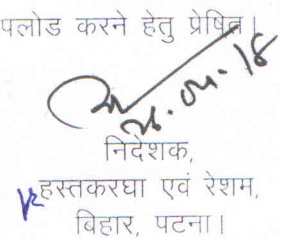 पलोड करने हेतु प्रेषित।
26.04.18
निदेशक,
हस्तकरघा एवं रेशम,
बिहार, पटना।